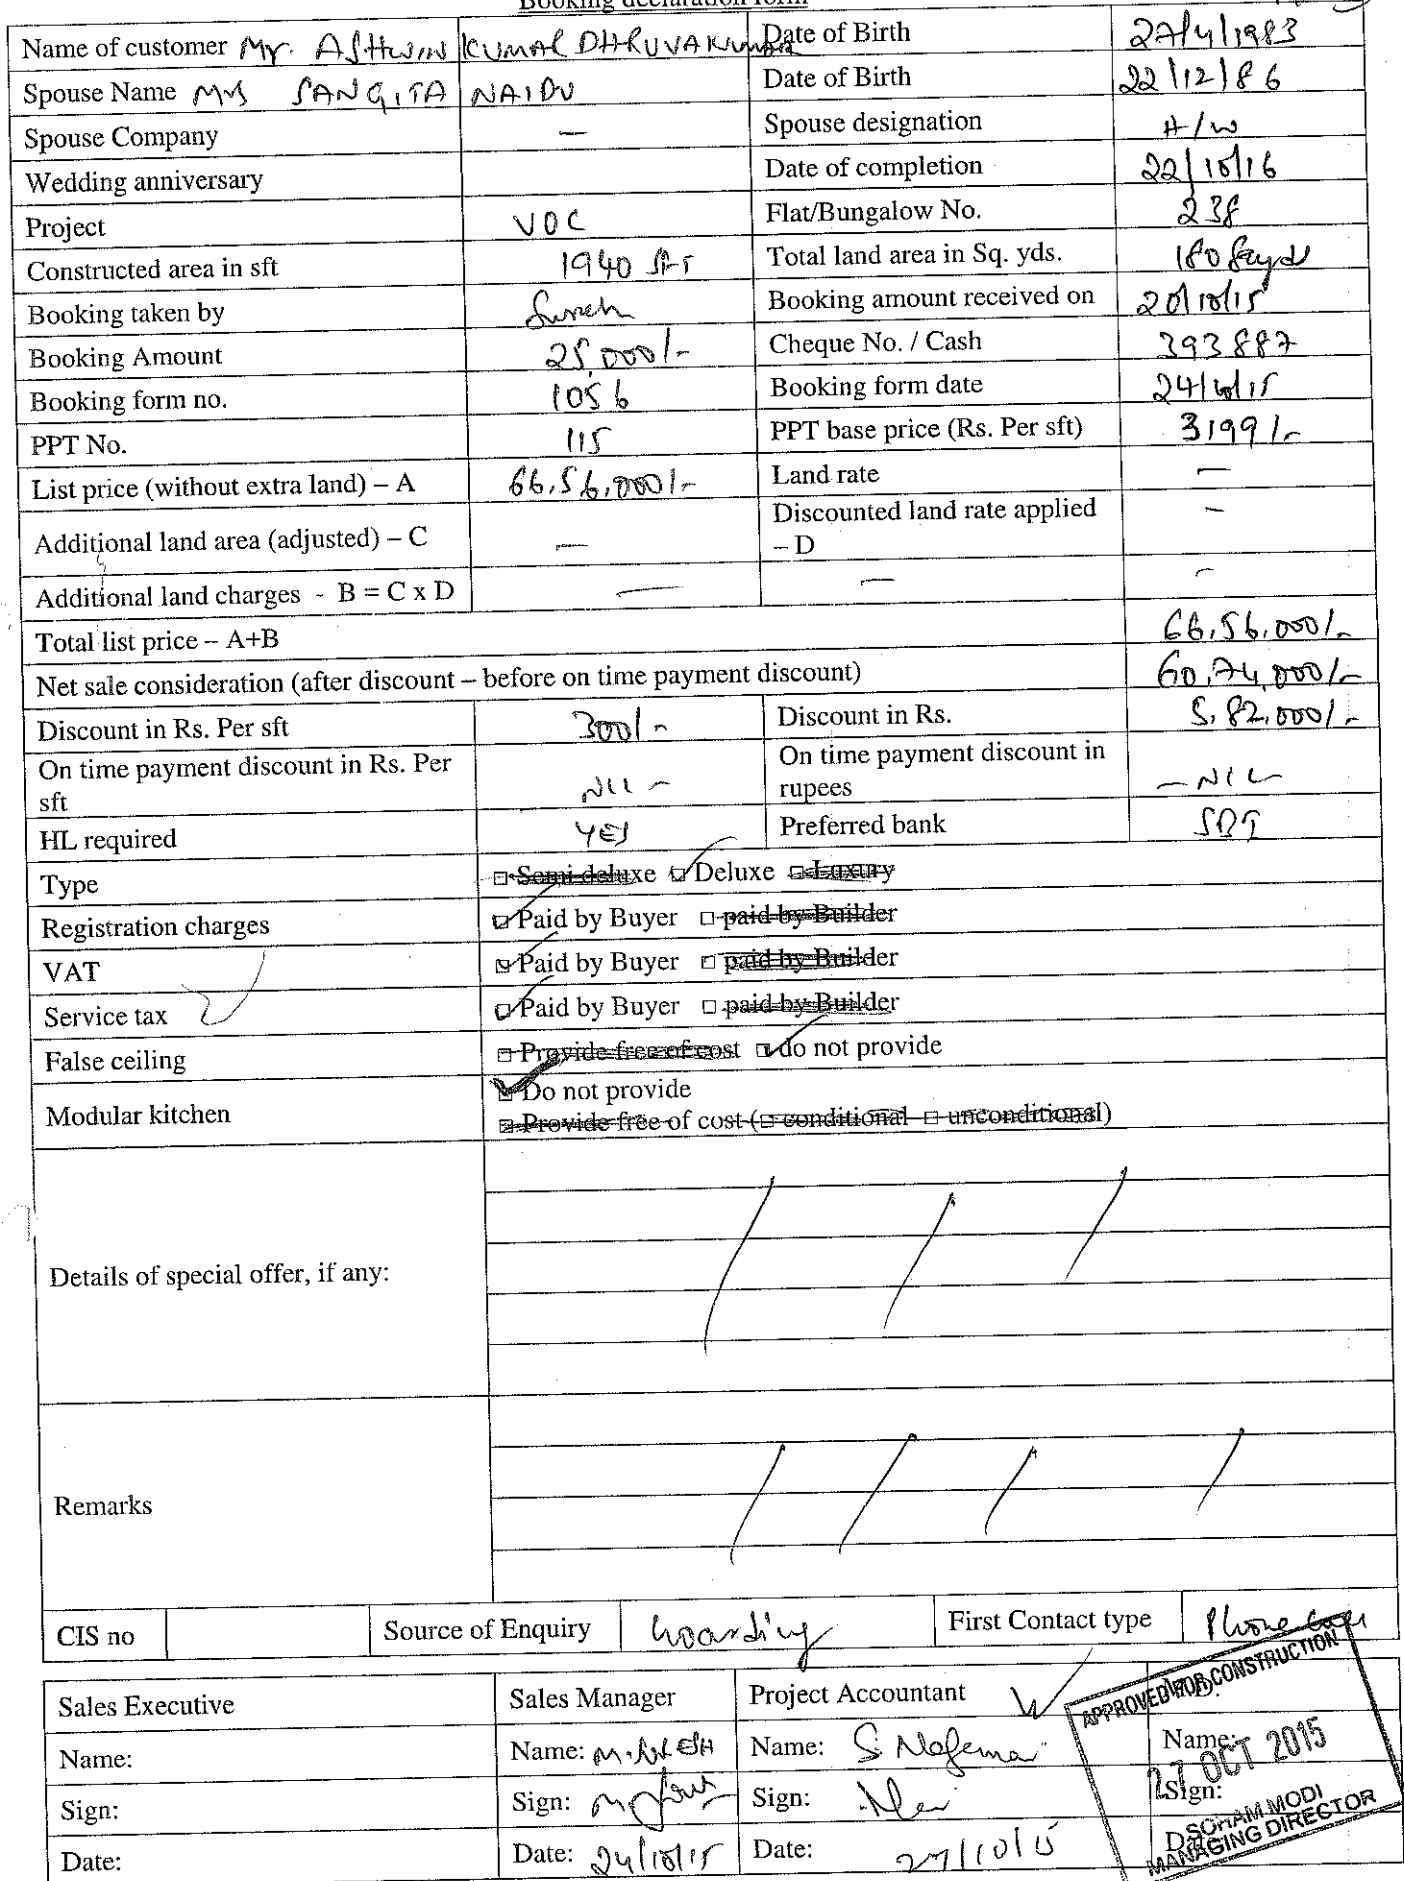 Booking declaration form
Name of customer Mr. ASHWIN KUMAR DHRUVAKUMAR Date of Birth 27/4/1983
Spouse Name Mrs SANGITA NAIDU Date of Birth 22/12/86
Spouse Company — Spouse designation H/W
Wedding anniversary Date of completion 22/10/16
Project VOC Flat/Bungalow No. 238
Constructed area in sft 1940 SFT Total land area in Sq. yds. 180 Sqyds
Booking taken by Suresh Booking amount received on 20/10/15
Booking Amount 25,000/- Cheque No. / Cash 393887
Booking form no. 1056 Booking form date 24/10/15
PPT No. 115 PPT base price (Rs. Per sft) 3199/-
List price (without extra land) – A 66,56,000/- Land rate —
Additional land area (adjusted) – C — Discounted land rate applied – D —
Additional land charges - B = C x D — — —
Total list price – A+B 66,56,000/-
Net sale consideration (after discount – before on time payment discount) 60,74,000/-
Discount in Rs. Per sft 300/- Discount in Rs. 5,82,000/-
On time payment discount in Rs. Per sft NIL - On time payment discount in rupees - NIL -
HL required YES Preferred bank
Type □ Semi deluxe ☑ Deluxe □ Luxury
Registration charges ☑ Paid by Buyer □ paid by Builder
VAT ☑ Paid by Buyer □ paid by Builder
Service tax ☑ Paid by Buyer □ paid by Builder
False ceiling □ Provide free of cost ☑ do not provide
Modular kitchen ☑ Do not provide
□ Provide free of cost (□ conditional □ unconditional)
Details of special offer, if any:
Remarks
CIS no Source of Enquiry hoarding First Contact type Phone
Sales Executive Sales Manager Project Accountant
Name: Name: Name: S
Sign: Sign: Sign: Sign:
Date: Date: 24/10/15 Date: 27/10/15
APPROVED FOR CONSTRUCTION
27 OCT 2015
SOHAM MODI
MANAGING DIRECTOR